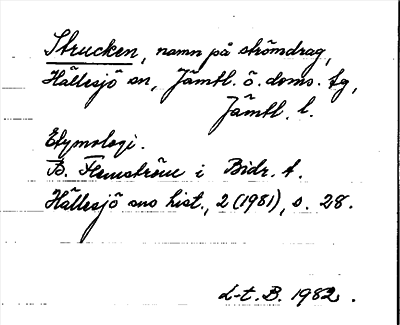 Strucken, namn på strömdrag,
Hällesjö sn, Jämtl. ö. doms. tg,
Jämtl. l.
Etymologi.
B. Flemström i Bidr. t.
Hällesjö sns hist., 2 (1981), s. 28.
L-t. B. 1982.